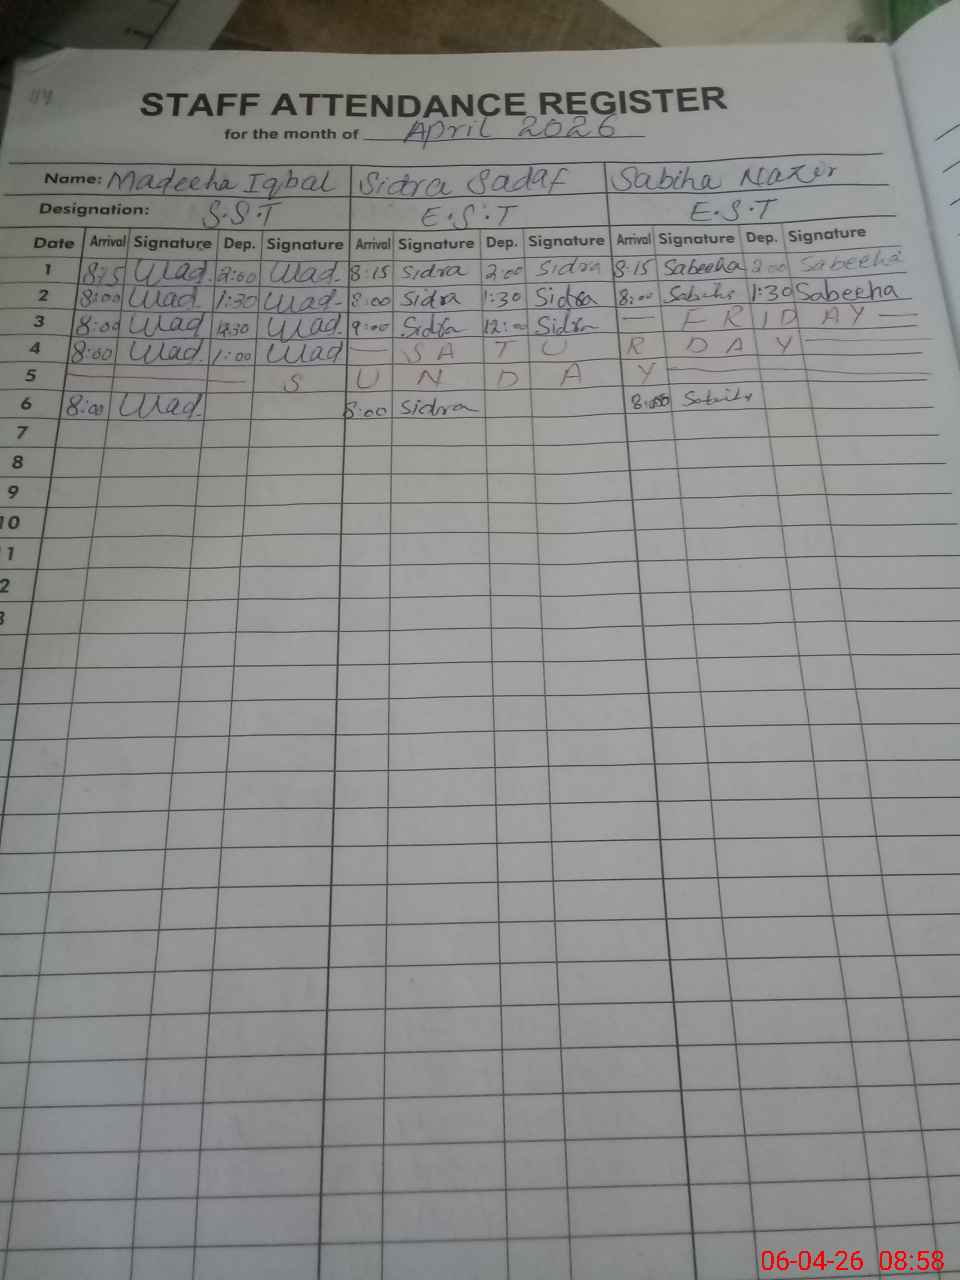 STAFF ATTENDANCE REGISTER
for the month of April 2026
Name: Madeeha Iqbal Sidra Sadaf Sabiha Nazir
Designation: S.S.T E.S.T E.S.T
Date Arrival Signature Dep. Signature Arrival Signature Dep. Signature Arrival Signature Dep. Signature
1 8:15 2:00 8:15 Sidra 2:00 Sidra 8:15 Sabeeha 2:00 Sabeeha
2 8:00 1:30 8:00 Sidra 1:30 Sidra 8:00 1:30 Sabeeha
3 8:00 9:00 Sidra 12:00 Sidra — FRIDAY —
4 8:00 1:00 — SATURDAY —
5 — SUNDAY —
6 8:00 8:00 Sidra 8:00
7
8
9
10
11
2
3
06-04-26 08:58